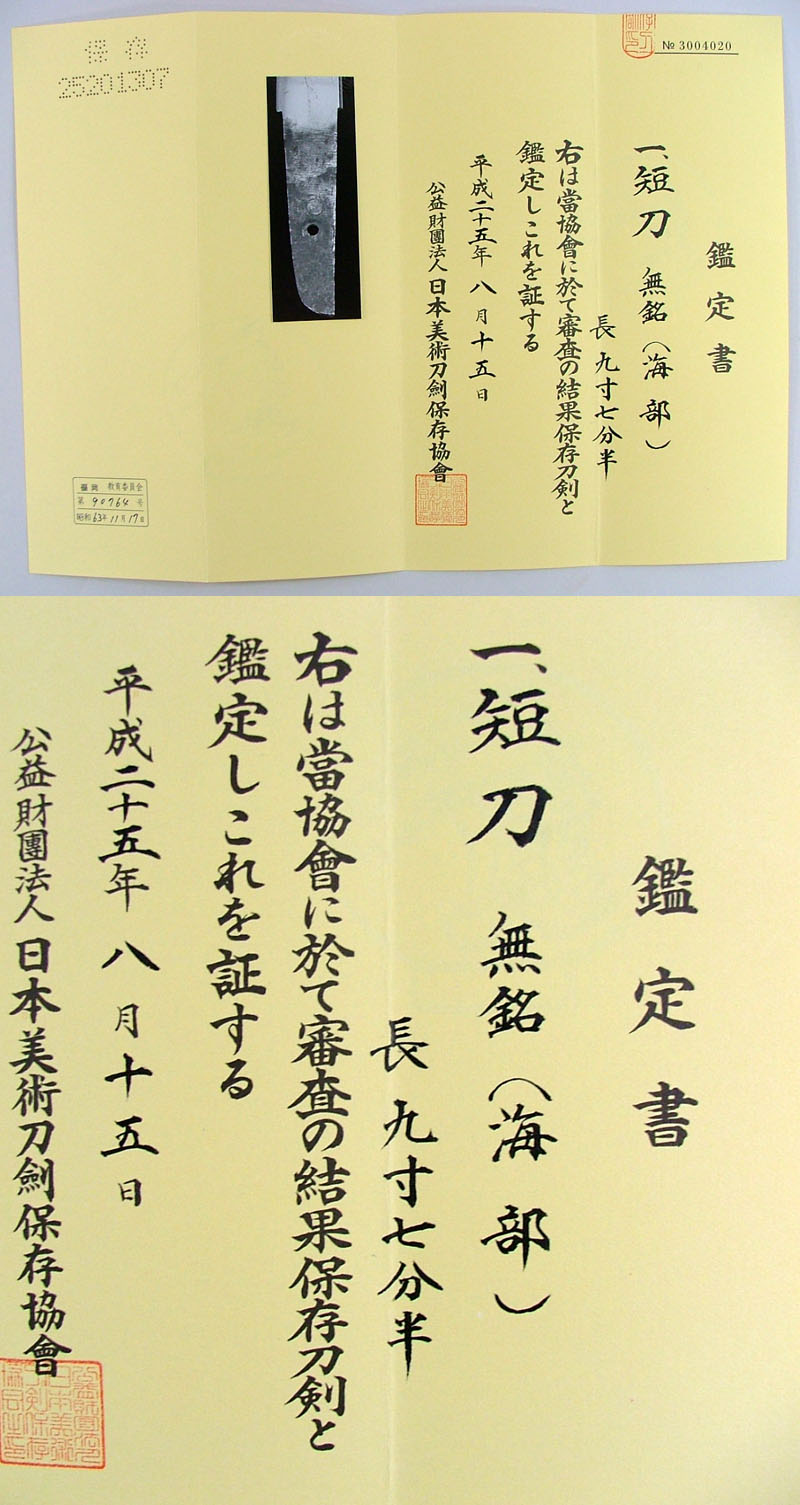 保存
25201307
№ 3004020
鑑定書
一、短刀 無銘（海部）
長 九寸七分半
右は當協會に於て審査の結果保存刀剣と
鑑定しこれを証する
平成二十五年 八月十五日
公益財團法人 日本美術刀劍保存協會
教育委員会
第 90764 号
昭和 63年 11月 17日
鑑定書
一、短刀 無銘（海部）
長 九寸七分半
右は當協會に於て審査の結果保存刀剣と
鑑定しこれを証する
平成二十五年 八月十五日
公益財團法人 日本美術刀劍保存協會